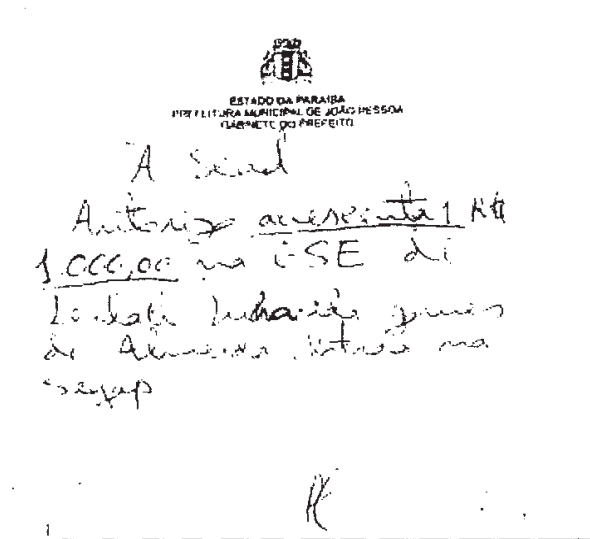 ESTADO DA PARAIBA
PREFEITURA MUNICIPAL DE JOÃO PESSOA
GABINETE DO PREFEITO
A Sead
Autorizo acrescentar R$
1.000,00 na GSE de
de Almeida lotado na
Segap